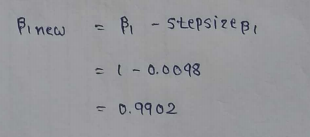 β₁ new = β₁ - stepsize β₁
= 1 - 0.0098
= 0.9902